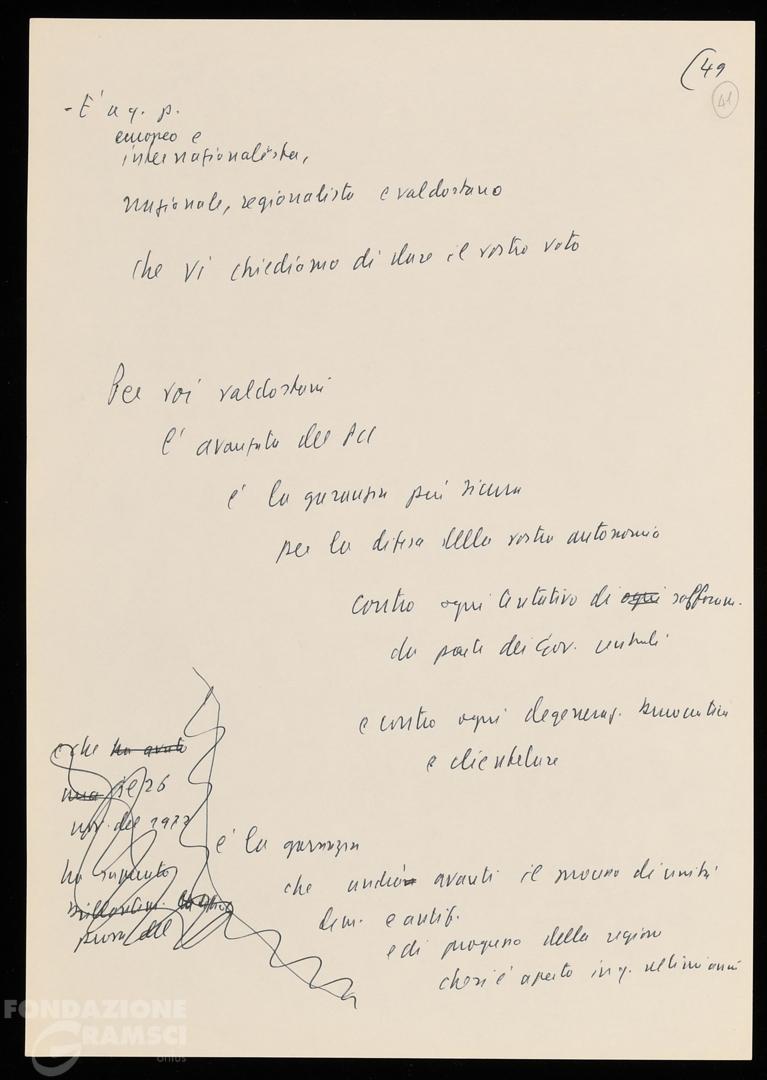 (49
41
- E' a q. p.
europeo e
internazionalista,
nazionale, regionalista e valdostano
che vi chiediamo di dare il vostro voto
Per voi valdostani
l'avanzata del PCI
è la garanzia più sicura
per la difesa della vostra autonomia
contro ogni tentativo di ogni soffocam.
da parte dei Gov. centrali
e contro ogni degeneraz. burocratica
e clientelare
e che ha avuto
una il 26
nov. del 1977
ha superato
prova del
è la garanzia
che andrà avanti il processo di unità
dem. e antif.
e di progresso della regione
che si è aperto in q. ultimi anni
FONDAZIONE
GRAMSCI
onlus